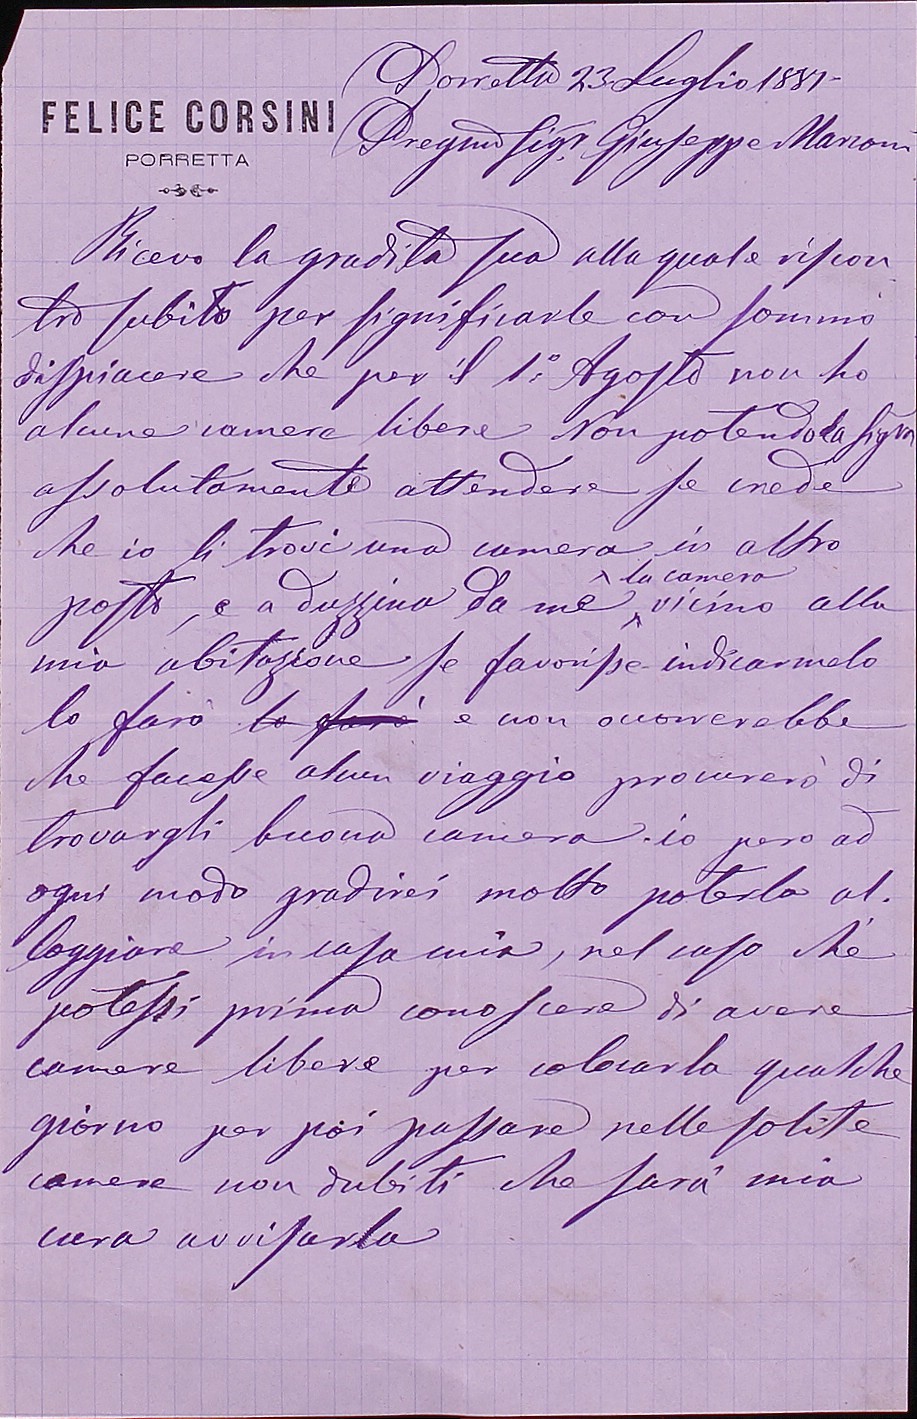 FELICE CORSINI
PORRETTA
Porretta 23 Luglio 1887
Pregmo Sigr. Giuseppe Marconi
Ricevo la gradita sua alla quale riscon
tro subito per significarle con sommo
dispiacere che per il 1° Agosto non ho
alcune camere libere Non potendo la Sigra
assolutamente attendere se crede
che io li trovi una camera in altro
posto, e a duzzina da me la camera vicino alla
mia abitazione se favorisse indicarmelo
lo farò lo farò e non occorrerebbe
che facesse alcun viaggio procurerò di
trovargli buona camera. io pero ad
ogni modo gradirei molto poterla al.
loggiare in casa mia, nel caso che
potessi prima conoscere di avere
camere libere per colocarla qualche
giorno per poi passare nelle solite
camere non dubiti che sarà mia
cura avvisarla